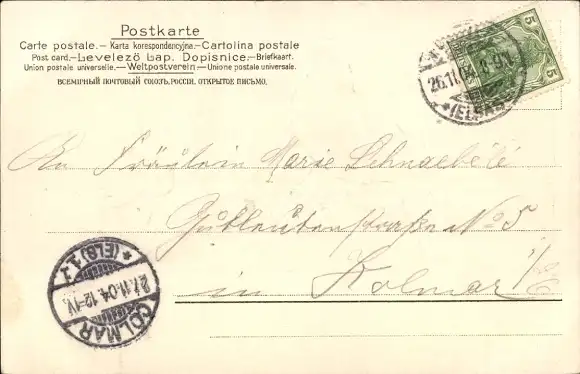 Postkarte
Carte postale.— Karta korespondencyjna.— Cartolina postale
Post card.— Levelező Lap. Dopisnice.— Briefkaart.
Union postale universelle.— Weltpostverein — Unione postale universale.
ВСЕМІРНЫЙ ПОЧТОВЫЙ СОЮЗЪ, РОССІЯ. ОТКРЫТОЕ ПИСЬМО.
5
5
26.11.04
*(ELSASS)
An Fräulein Marie Schnaebélé
straße No 5
in Kolmar i/E
COLMAR
27.11.04.12-1V.
*(ELS) 1.1